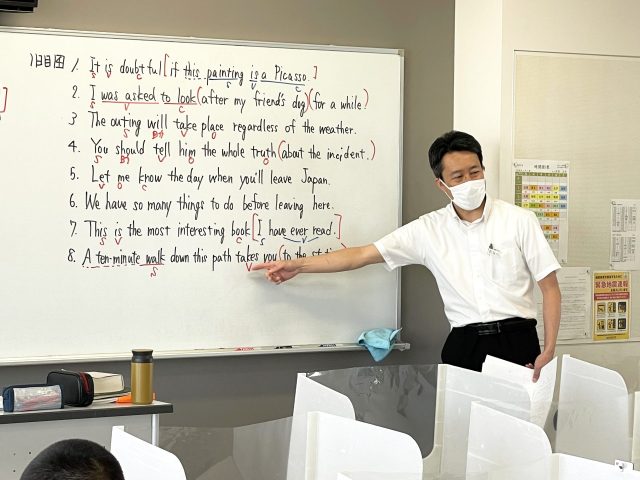 1日目 1. It is doubtful [if this painting is a Picasso.]
2. I was asked to look (after my friend's dog) (for a while.)
3 The outing will take place regardless of the weather.
4. You should tell him the whole truth (about the incident.)
5. Let me know the day when you'll leave Japan.
6. We have so many things to do before leaving here.
7. This is the most interesting book [I have ever read.]
8. A ten-minute walk down this path takes you (to the station)
緊急地震速報